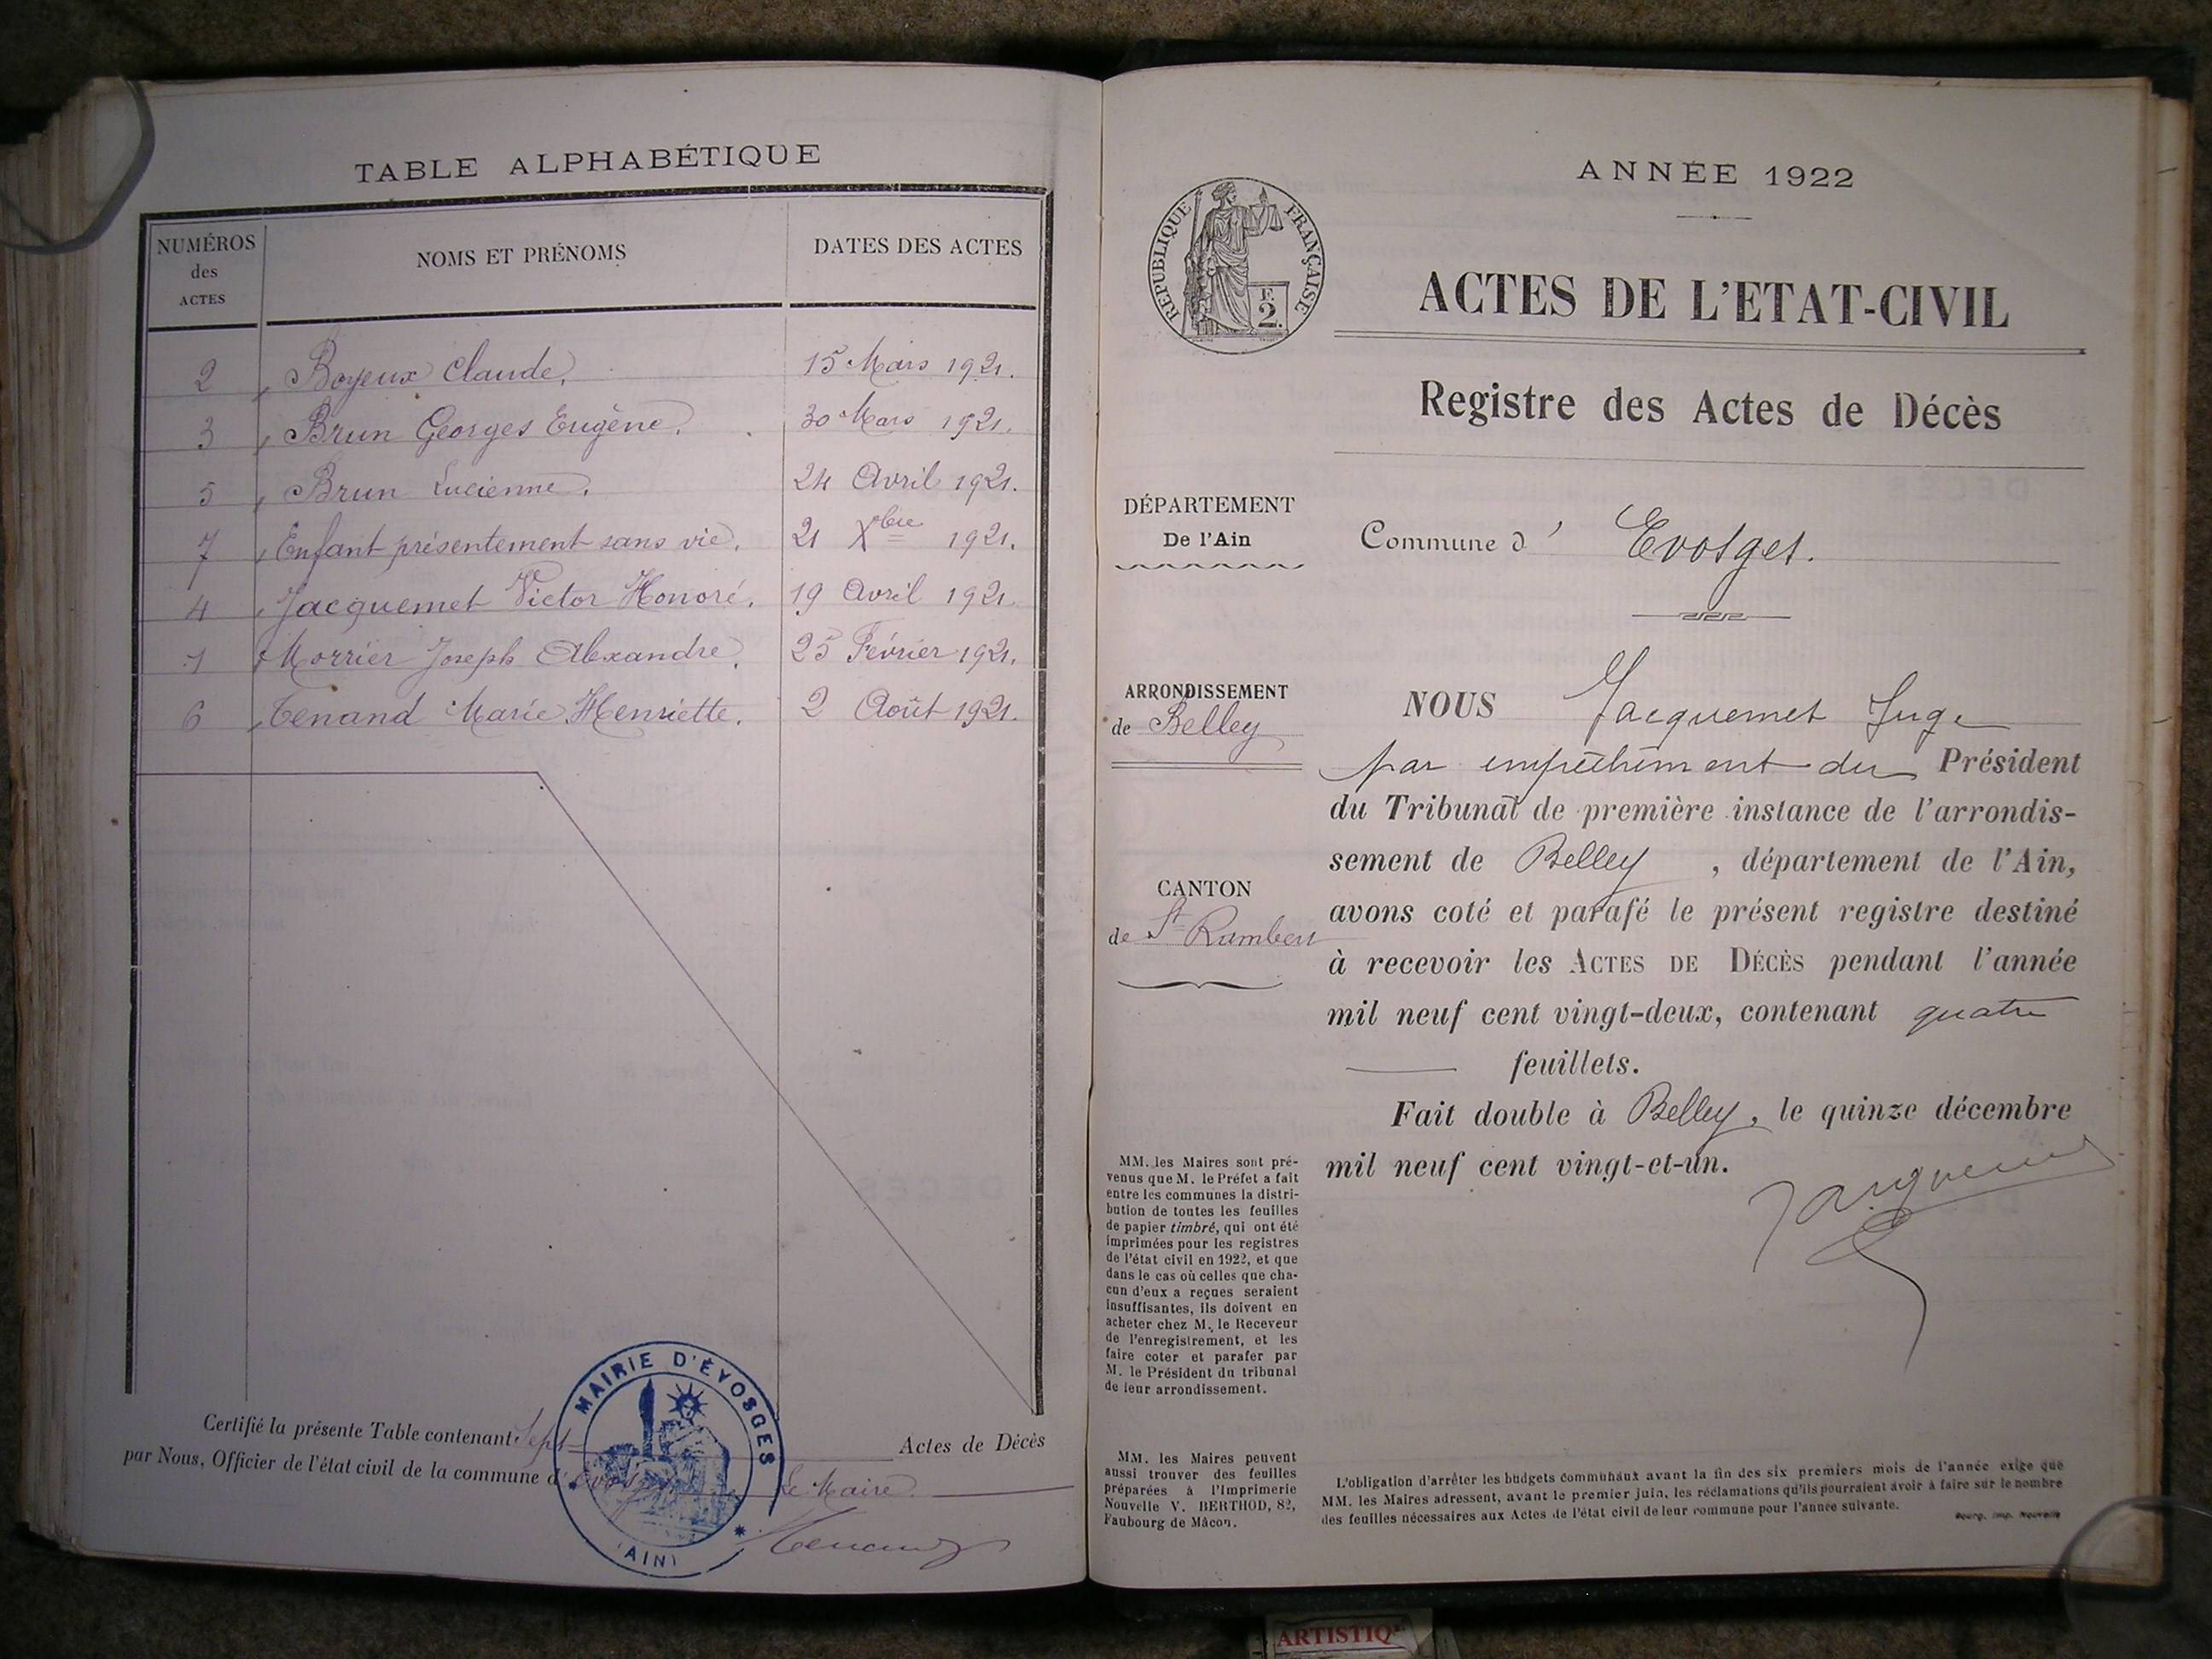 TABLE ALPHABÉTIQUE
NUMÉROS des ACTES NOMS ET PRÉNOMS DATES DES ACTES
2 Boyeux Claude. 15 Mars 1921.
3 Brun Georges Eugène. 30 Mars 1921.
5 Brun Lucienne. 24 Avril 1921.
7 Enfant présentement sans vie. 21 Xbre 1921.
4 Jacquemet Victor Honoré. 19 Avril 1921.
1 Morrier Joseph Alexandre. 25 Février 1921.
6 Tenand Marie Henriette. 2 Août 1921.
Certifié la présente Table contenant Sept Actes de Décès
par Nous, Officier de l'état civil de la commune d' Evosges Le Maire.
Tenand
MAIRIE D'ÉVOSGES
(AIN)
ANNÉE 1922
RÉPUBLIQUE FRANÇAISE
F. 2.
ACTES DE L'ETAT-CIVIL
Registre des Actes de Décès
DÉPARTEMENT
De l'Ain
Commune d' Evosges.
ARRONDISSEMENT
de Belley
CANTON
de St Rambert
NOUS Jacquemet Juge
par empêchement du Président
du Tribunal de première instance de l'arrondis-
sement de Belley, département de l'Ain,
avons coté et parafé le présent registre destiné
à recevoir les ACTES DE DÉCÈS pendant l'année
mil neuf cent vingt-deux, contenant quatre
feuillets.
Fait double à Belley, le quinze décembre
mil neuf cent vingt-et-un.
Jacquemet
MM. les Maires sont pré-
venus que M. le Préfet a fait
entre les communes la distri-
bution de toutes les feuilles
de papier timbré, qui ont été
imprimées pour les registres
de l'état civil en 1922, et que
dans le cas où celles que cha-
cun d'eux a reçues seraient
insuffisantes, ils doivent en
acheter chez M. le Receveur
de l'enregistrement, et les
faire coter et parafer par
M. le Président du tribunal
de leur arrondissement.
MM. les Maires peuvent
aussi trouver des feuilles
préparées à l'Imprimerie
Nouvelle V. BERTHOD, 82,
Faubourg de Mâcon.
L'obligation d'arrêter les budgets communaux avant la fin des six premiers mois de l'année exige que
MM. les Maires adressent, avant le premier juin, les réclamations qu'ils pourraient avoir à faire sur le nombre
des feuilles nécessaires aux Actes de l'état civil de leur commune pour l'année suivante.
Bourg, Imp. Nouvelle
ARTISTIQ